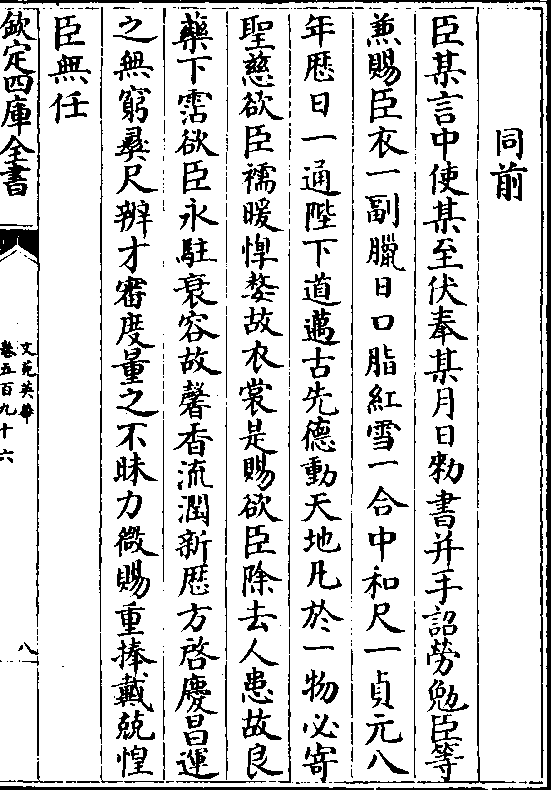 同前
臣某言中使某至伏奉某月日勑書并手詔勞勉臣等
兼賜臣衣一副臘日口脂紅雪一合中和尺一貞元八
年歴日一通陛下道邁古先德動天地凡於一物必寄
聖慈欲臣襦暖惸嫠故衣裳是賜欲臣除去人患故良
藥下霑欲臣永駐衰容故馨香流潤新歴方啓慶昌運
之無窮彞尺辨才審度量之不昧力微賜重捧戴兢惶
臣無任
欽定四庫全書
文苑英華
卷五百九十六
八